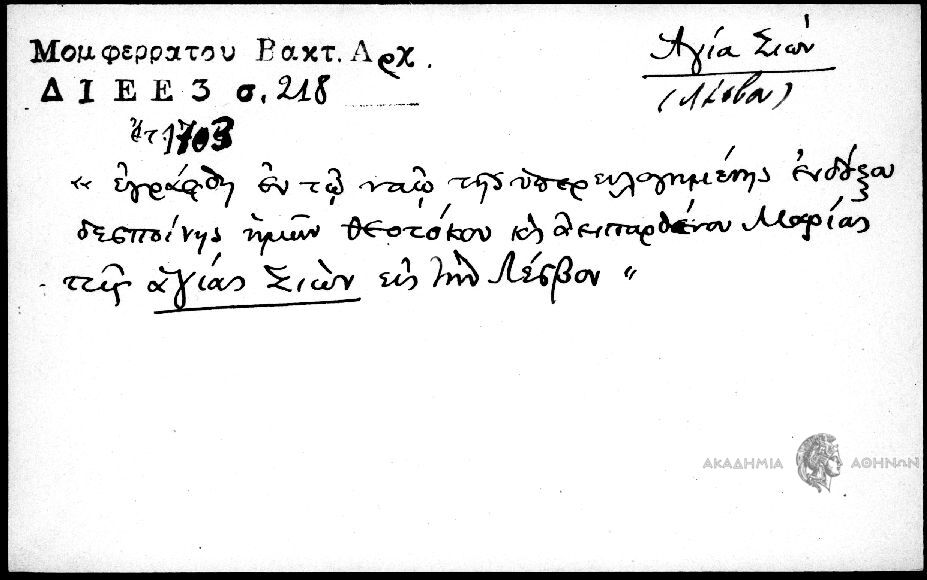 Μομφερρατου Βακτ. Αρχ.
Δ Ι Ε Ε 3 σ. 218
Ἁγία Σιών
(Λέσβου)
ἔτ. 1703
“ ἐγράφθη ἐν τῷ ναῷ τῆς ὑπερευλογημένης ἐνδόξου
δεσποίνης ἡμῶν θεοτόκου κὴ ἀειπαρθένου Μαρίας
τῆς ἁγίας Σιὼν εἰς τὴν Λέσβον ”
ΑΚΑΔΗΜΙΑ ΑΘΗΝΩΝ